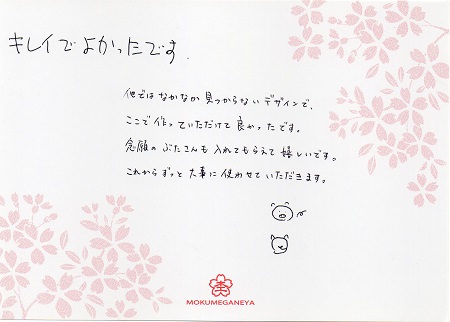 キレイでよかったです.
他ではなかなか見つからないデザインで、
ここで作っていただけて良かったです。
念願のぶたさんも入れてもらえて嬉しいです。
これからずっと大事に使わせていただきます。
MOKUMEGANEYA